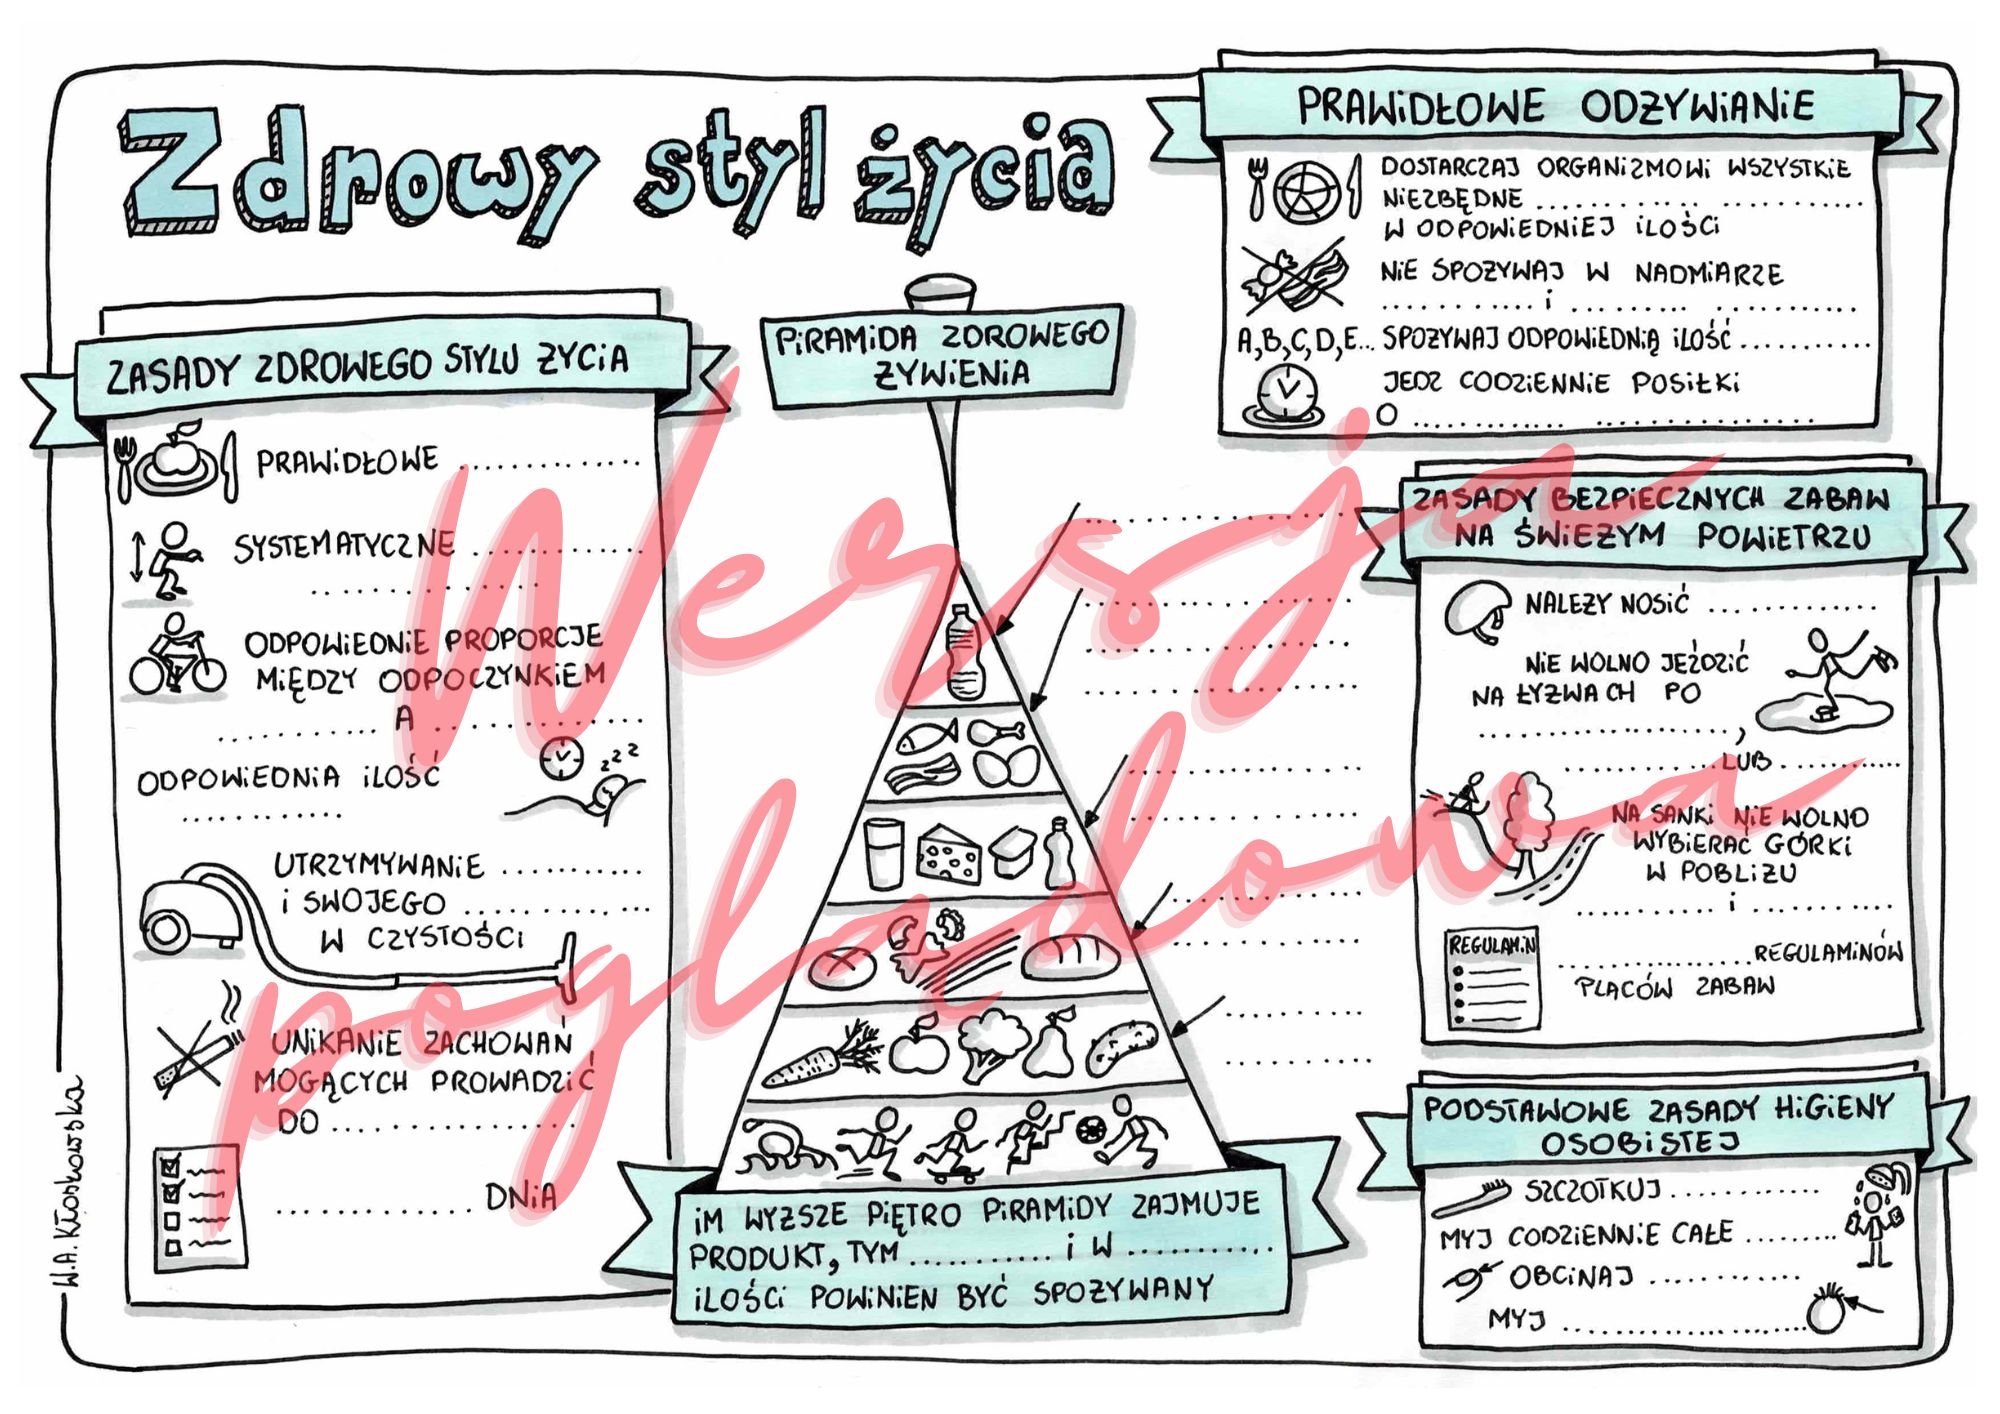 Zdrowy styl życia
PRAWIDŁOWE ODŻYWIANIE
DOSTARCZAJ ORGANIZMOWI WSZYSTKIE
NIEZBĘDNE .......... ..........
W ODPOWIEDNIEJ ILOŚCI
NIE SPOŻYWAJ W NADMIARZE
.......... i .......... ..........
A,B,C,D,E... SPOŻYWAJ ODPOWIEDNIĄ ILOŚĆ ..........
JEDZ CODZIENNIE POSIŁKI
O .......... ..........
ZASADY ZDROWEGO STYLU ŻYCIA
PRAWIDŁOWE ..........
SYSTEMATYCZNE ..........
..........
ODPOWIEDNIE PROPORCJE
MIĘDZY ODPOCZYNKIEM
.......... A ..........
ODPOWIEDNIA ILOŚĆ
..........
zzz
UTRZYMYWANIE ..........
I SWOJEGO ..........
W CZYSTOŚCI
UNIKANIE ZACHOWAŃ
MOGĄCYCH PROWADZIĆ
DO ..........
.......... DNIA
PIRAMIDA ZDROWEGO
ŻYWIENIA
IM WYŻSZE PIĘTRO PIRAMIDY ZAJMUJE
PRODUKT, TYM .......... i W ..........
ILOŚCI POWINIEN BYĆ SPOŻYWANY
ZASADY BEZPIECZNYCH ZABAW
NA ŚWIEŻYM POWIETRZU
NALEŻY NOSIĆ ..........
NIE WOLNO JEŹDZIĆ
NA ŁYŻWACH PO
..........,
.......... LUB ..........
NA SANKI NIE WOLNO
WYBIERAĆ GÓRKI
W POBLIŻU
.......... i ..........
REGULAMIN
.......... REGULAMINÓW
PLACÓW ZABAW
PODSTAWOWE ZASADY HIGIENY
OSOBISTEJ
SZCZOTKUJ ..........
MYJ CODZIENNIE CAŁE ..........
OBCINAJ ..........
MYJ ..........
W.A. Kłoskowska
Wersja
poglądowa